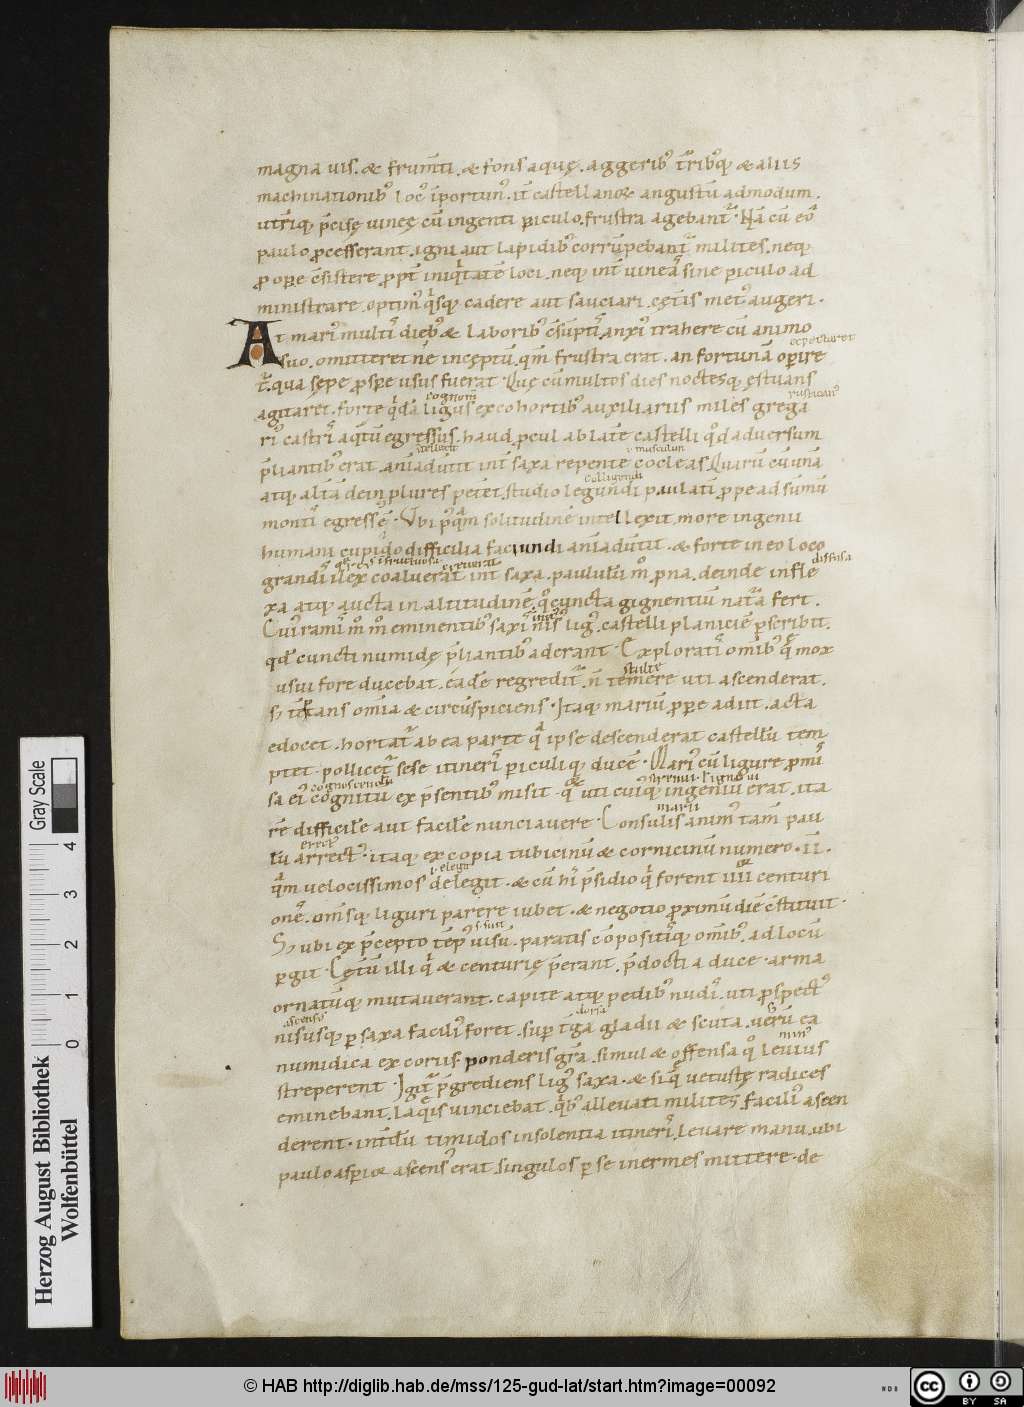 magna uis. & frum̄ti. & fons aquę. aggerib᷒ t̄rib᷒q; & aliis
machinationib᷒ loc᷒ īportun᷒. it̄ castellanoꝝ angustū admodum.
utrīq; p̄cisę uineę cū ingenti ꝑiculo. frustra agebant᷒. Nā cū eō
paulo ꝓcesserant. igni aut lapidib᷒ corrūpebant᷒ milites. neq;
ꝓ oꝑe c̄sistere ꝓpt̄ iniq̄tatē loci. neq; int̄ uineā sine ꝑiculo ad
ministrare. optim᷒ q̄sq; cadere aut sauciari. cęt̄is met᷒ augeri.
At mari᷒ multī dieb᷒ & laborib᷒ c̄sūptī. anxi᷒ trahere cū animo
suo. omitteret ne incęptū. qm̄ frustra erat. an fortunā oꝑire
t᷒. qua sępe ꝓspe usus fuerat. Que cū multos dies noctesq; ęstuans
cognom̄
rustican᷒
agitaret. forte q̄dā ligus ex cohortib᷒ auxiliariis miles grega
ri᷒ castrī aq̄tū egressus. haud ꝓcul ab latē castelli q̄d aduersum
i. musculun
p̄liantib᷒ erat. anīadut̄it int̄ saxa repente cocleas. Quarū cū unā
Colligendi
atq; aliā dein plures pet̄et. studio legundi paulatī ꝓpe ad sūmū
montī egressę̄. Vbi p᷒q̄m solitudinē intellexit. more ingenii
humani cupido difficilia faciundi anīadut̄it. & forte in eo loco
diffusa
grandī ilex coaluerat int̄ saxa. paululū m᷒ ꝓna. deinde infle
xa atq; aucta in altitudinē. q̄ cuncta gignentiū nat̄a fert.
Cui᷒ ramī m᷒ m᷒ eminentib᷒ saxī nis᷒ lig᷒. castelli planiciē ꝑscribit.
qd̄ cuncti numidę p̄liantib᷒ aderant. Exploratī omīb᷒ q̄ mox
stulte
usui fore ducebat. eādē regredit᷒. n̄ temere uti ascenderat.
s; tēptans omīa & circūspiciens. Itaq; mariū ꝓꝑe adiit. acta
edocet. hortat᷒ ab ea parte q̄ ipse descenderat castellū tem
ptet. pollicet᷒ sese itinerī ꝑiculiq; ducē. Mari᷒ cū ligure ꝓmis
cognoscenda
sa ei᷒ cognitū ex p̄sentib᷒ misit. q̄ uti cui᷒q; ingeniū erat. ita
marii
rē difficilē aut facilē nunciauere. Consulis anim᷒ tam̄ pau
erect᷒
lū arrect᷒. itaq; ex copia tubicinū & cornicinū numero. ii.
i. elegit
q̄m uelocissimos delegit. & cū hī p̄sidio q̄ forent iiii centuri
onē. om̄sq; liguri parere iubet. & negotio ꝓximū diē c̄stituit.
S; ubi ex p̄cepto tēp᷒ uisū. paratis cōpositīsq; omīb᷒ ad locū
ꝑgit. Cętū illi q̄ & centurię p̄erant. p̄docti a duce. arma
ornatūq; mutauerant. capite atq; pedib᷒ nudī. uti ꝓspect᷒
ascensus
dorsa
nisusq; ꝑ saxa facili᷒ foret. suꝑ t̄ga gladii & scuta. uerū ea
min᷒
numidica ex coriis. ponderis gr̄a. simul & offensa q̄ leuius
streperent. Igit᷒ p̄grediens lig᷒ saxa. & si q̄ uetustę radices
eminebant. laq̄is uinciebat. q̄b᷒ alleuati milites facili᷒ ascen
derent. int̄dū timidos insolentia itinerī leuare manu. ubi
paulo asꝑioꝛ ascens᷒ erat. singulos p̄ se inermes mittere. de
Herzog August Bibliothek
Wolfenbüttel
Gray Scale
0 1 2 3 4
© HAB http://diglib.hab.de/mss/125-gud-lat/start.htm?image=00092
cc BY SA